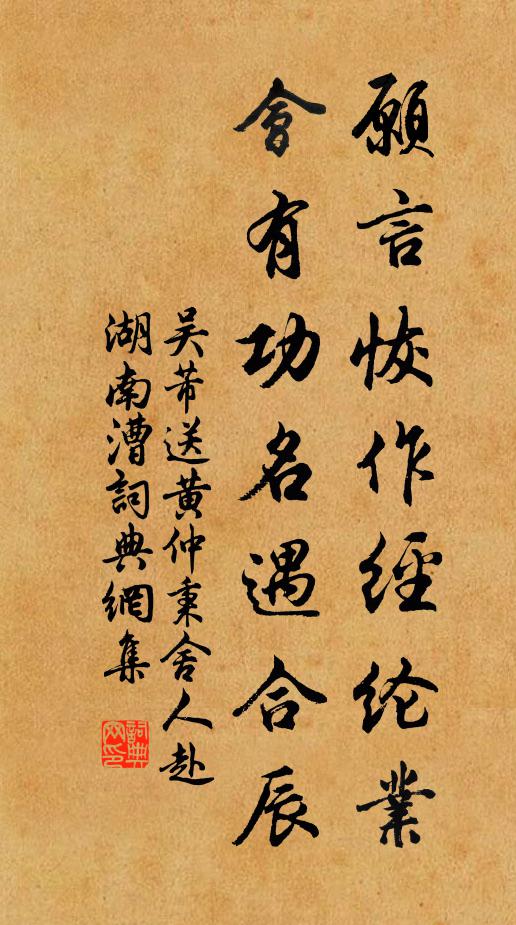 願言恢作經纶業
會有功名遇合辰
吴芾送黄仲秉舍人赴
湖南漕詞典網集
詞典網印